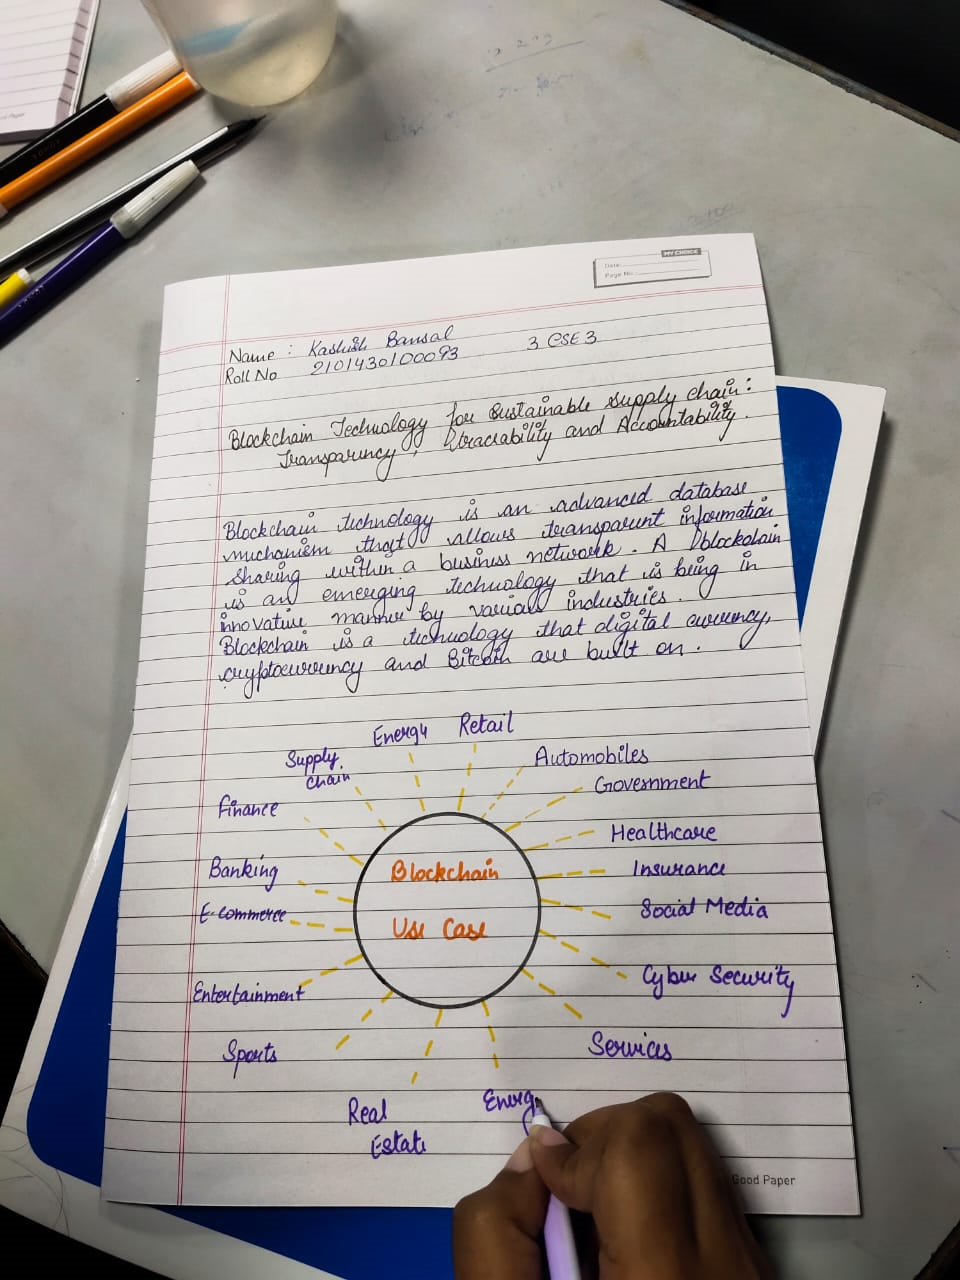 MY CHOICE
Date:
Page No.
Name : Kashish Bansal
3 CSE 3
Roll No 2101430100093
Blockchain Technology for Sustainable supply chain:
Transparency, traceability and Accountability.
Blockchain technology is an advanced database
mechanism that allows transparent information
sharing within a business network. A blockchain
is an emerging technology that is being in
innovative manner by various industries.
Blockchain is a technology that digital currency,
cryptocurrency and Bitcoin are built on.
Energy
Retail
Supply
chain
Automobiles
Government
Finance
Healthcare
Banking
Blockchain
Insurance
E-commerce
Use Case
Social Media
Entertainment
Cyber Security
Sports
Services
Real
Estate
Energ
Good Paper